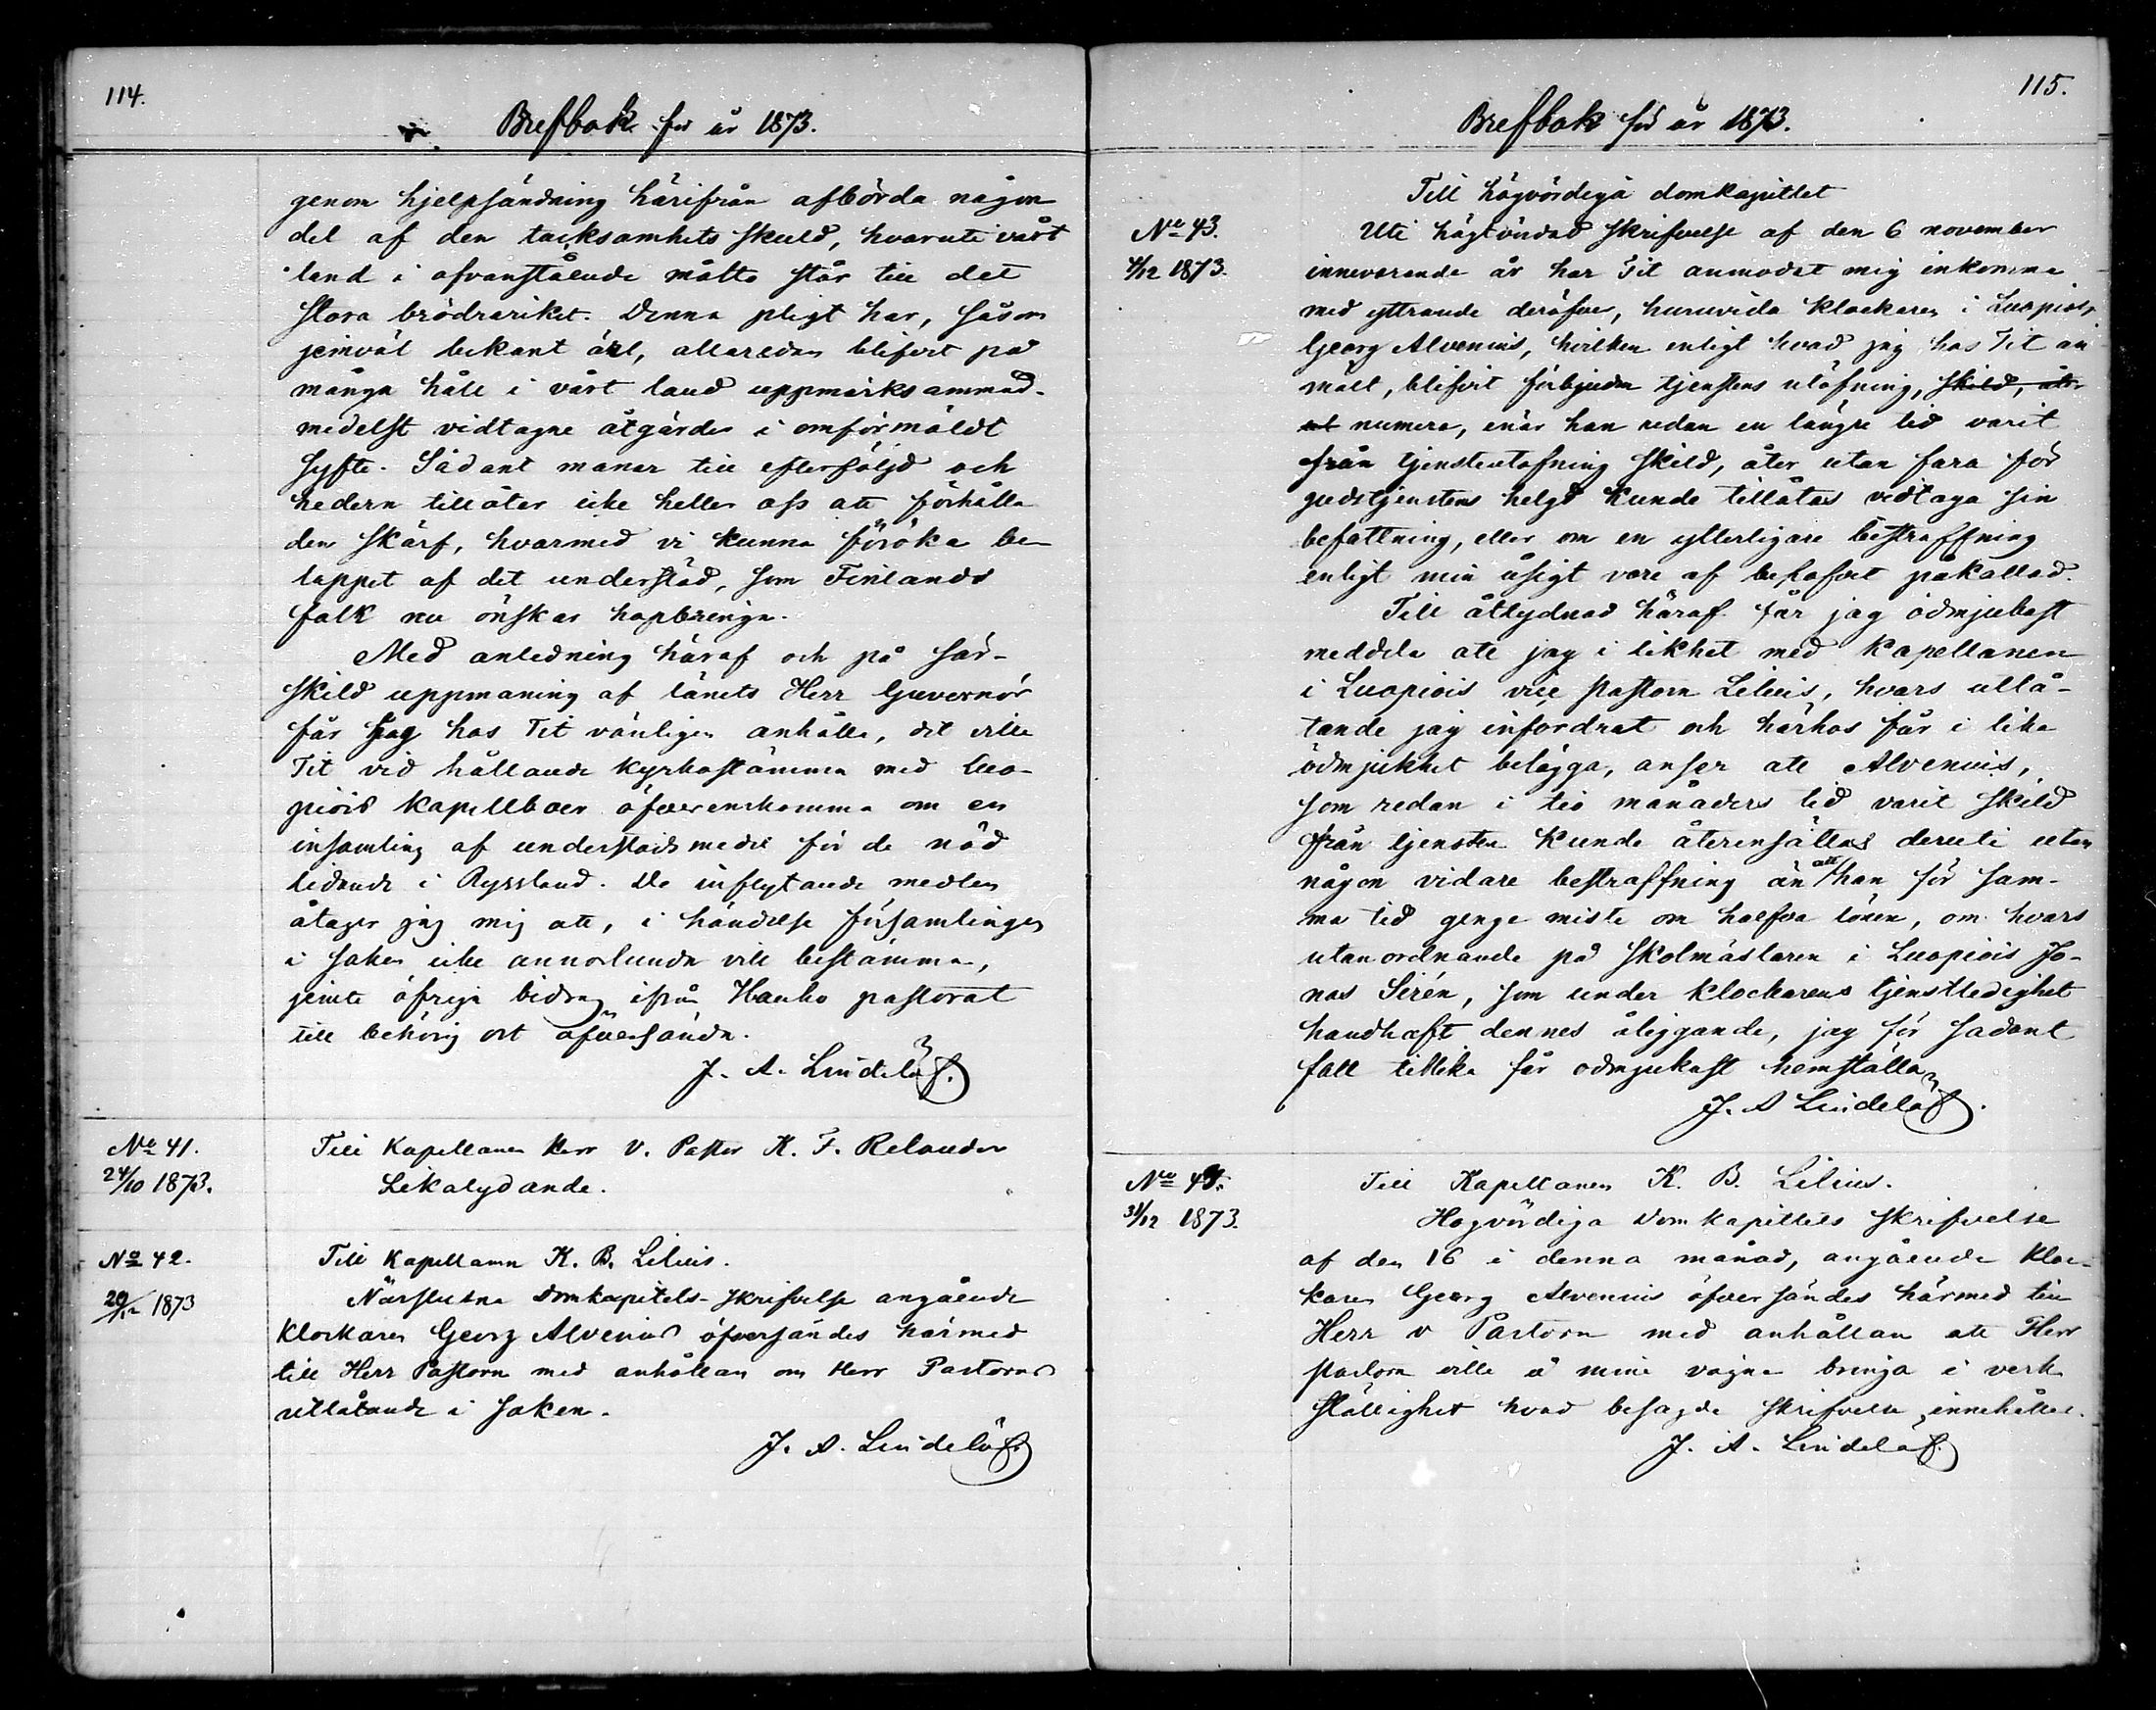 114.
Brefbok för år 1873.
genom hjelpsändning härifrån afbörda någon
del af den tacksamhets skuld, hvaruti vårt
land i ofvanstående måtto står till det
stora brödrariket. Denna pligt har, såsom
jemväl bekant är, allaredan blifvit på
många håll i vårt land uppmärksammad
medelst vidtagne åtgärder i omförmäldt
syfte. Sådant manar till efterföljd och
hedern tillåter icke heller oss att förhålla
den skärf, hvarmed vi kunna föröka be-
loppet af det understöd, som Finlands
folk nu önskar hopbringa.
Med anledning häraf och på sär-
skild uppmaning af länets Herr Guvernör
får jag hos Tit vänligen anhålla, det ville
Tit vid hållande kyrkostämma med Luo-
piois kapellboer öfverenskomma om en
insamling af understöds medel för de nöd
lidande i Ryssland. De inflytande medlen
åtager jag mig att, i händelse församlingen
i saken icke annorlunda vill bestämma,
jemte öfriga bidrag ifrån Hauho pastorat
till behörig ort öfversända.
J. A. Lindelöf.
No 41.
24/10 1873.
Till Kapellanen Herr V. Pastor K. F. Relander
Likalydande.
No 42.
20/12 1873
Till Kapellanen K. B. Lilius.
Närslutna Domkapitels-skrifvelse angående
Klockaren Georg Alvenius öfversändes härmed
till Herr Pastorn med anhållan om Herr Pastorns
utlåtande i saken.
J. A. Lindelöf.
115.
Brefbok för år 1873.
Till högvördiga domkapitlet
No 43.
4/12 1873.
Uti högtvördad skrifvelse af den 6 november
innevarande år har Tit anmodat mig inkomma
med yttrande deröfver, huruvida klockaren i Luopiois
Georg Alvenius, hvilken enligt hvad jag hos Tit an
mält, blifvit förbjuden tjenstens utöfning, skild, åter
ut numera, enär han redan en längre tid varit
från tjensteutöfning skild, åter utan fara för
gudstjenstens helgd kunde tillåtas vidtaga sin
befattning, eller om en ytterligare bestraffning
enligt min åsigt vore af behofvet påkallad.
Till åtlydnad häraf får jag ödmjukast
meddela att jag i likhet med Kapellanen
i Luopiois vice pastorn Lilius, hvars utlå-
tande jag infordrat och härhos får i lika
ödmjukhet bilägga, anser att Alvenius,
som redan i tio månaders tid varit skild
från tjensten kunde återinsättas deruti utan
någon vidare bestraffning än att han för sam-
ma tid ginge miste om halfva lönen, om hvars
utanordnande på skolmästaren i Luopiois Jo-
nas Sirén, som under klockarens tjenstledighet
handhaft dennes åliggande, jag för sådant
fall tillika får ödmjukast hemställa
J. A Lindelöf.
No 44.
31/12 1873.
Till Kapellanen K. B. Lilius.
Högvördiga Domkapitlets skrifvelse
af den 16 i denna månad, angående kloc-
karen Georg Alvenius öfversändes härmed till
Herr v Pastorn med anhållan att Herr
pastorn ville å mina vägna bringa i verk
ställighet hvad besagde skrifvelse innehåller.
J. A. Lindelöf.